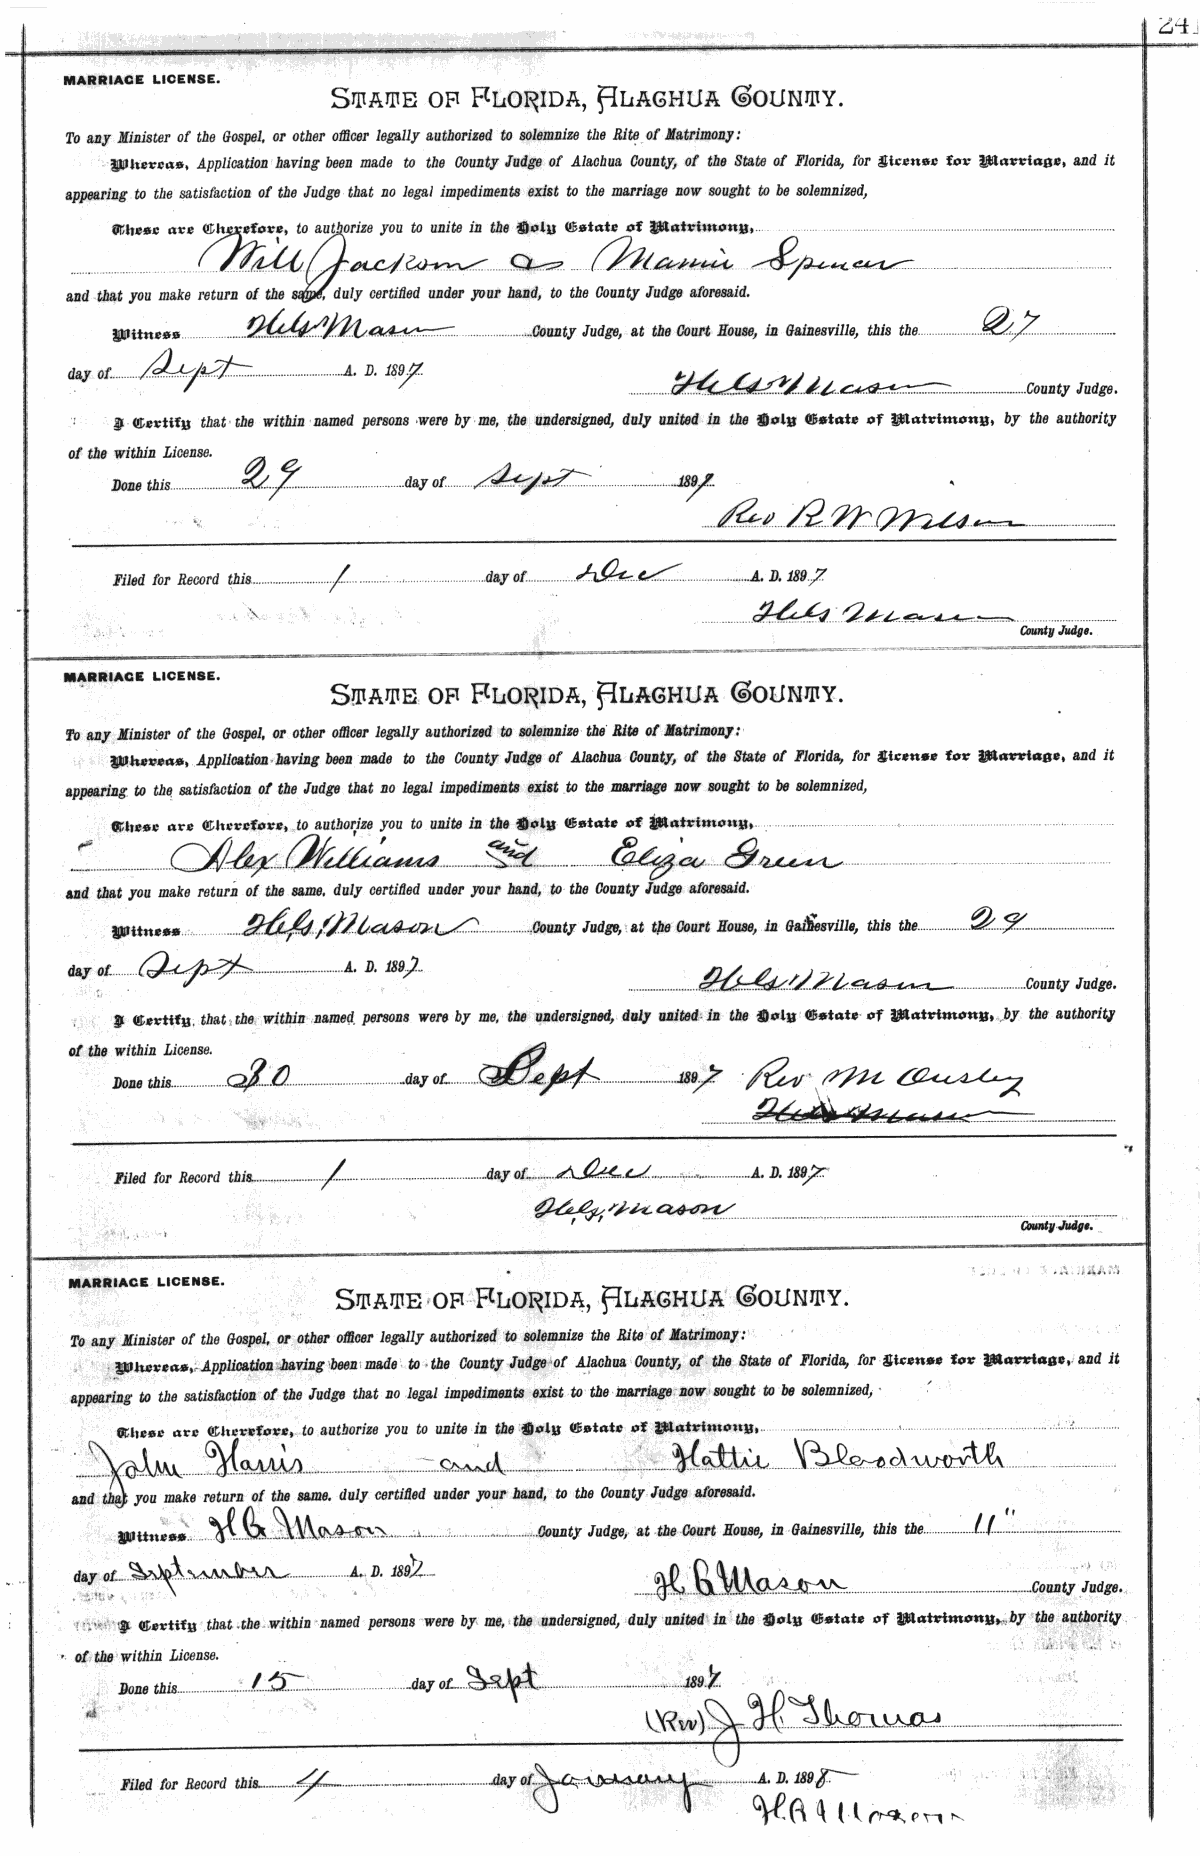 241
MARRIAGE LICENSE.
STATE OF FLORIDA, ALACHUA COUNTY.
To any Minister of the Gospel, or other officer legally authorized to solemnize the Rite of Matrimony:
Whereas, Application having been made to the County Judge of Alachua County, of the State of Florida, for License for Marriage, and it
appearing to the satisfaction of the Judge that no legal impediments exist to the marriage now sought to be solemnized,
These are Therefore, to authorize you to unite in the Holy Estate of Matrimony,
Will Jackson & Mamie Spencer
and that you make return of the same, duly certified under your hand, to the County Judge aforesaid.
Witness Mason County Judge, at the Court House, in Gainesville, this the 27
day of Sept A. D. 1897
Mason County Judge.
I Certify that the within named persons were by me, the undersigned, duly united in the Holy Estate of Matrimony, by the authority
of the within License.
Done this 29 day of Sept 1897
Rev R W Wilson
Filed for Record this 1 day of Dec A. D. 1897
Mason
County Judge.
MARRIAGE LICENSE.
STATE OF FLORIDA, ALACHUA COUNTY.
To any Minister of the Gospel, or other officer legally authorized to solemnize the Rite of Matrimony:
Whereas, Application having been made to the County Judge of Alachua County, of the State of Florida, for License for Marriage, and it
appearing to the satisfaction of the Judge that no legal impediments exist to the marriage now sought to be solemnized,
These are Therefore, to authorize you to unite in the Holy Estate of Matrimony,
Alex Williams and Eliza Green
and that you make return of the same. duly certified under your hand, to the County Judge aforesaid.
Witness Mason County Judge, at the Court House, in Gainesville, this the 29
day of Sept A. D. 1897
Mason County Judge.
I Certify, that the within named persons were by me, the undersigned, duly united in the Holy Estate of Matrimony, by the authority
of the within License.
Done this 30 day of Sept 1897 Rev M Ousley
Mason
Filed for Record this 1 day of Dec A. D. 1897
Mason
County Judge.
MARRIAGE LICENSE.
STATE OF FLORIDA, ALACHUA COUNTY.
To any Minister of the Gospel, or other officer legally authorized to solemnize the Rite of Matrimony:
Whereas, Application having been made to the County Judge of Alachua County, of the State of Florida, for License for Marriage, and it
appearing to the satisfaction of the Judge that no legal impediments exist to the marriage now sought to be solemnized,
These are Therefore, to authorize you to unite in the Holy Estate of Matrimony,
John Harris and Hattie Bloodworth
and that you make return of the same. duly certified under your hand, to the County Judge aforesaid.
Witness Mason County Judge, at the Court House, in Gainesville, this the 11"
day of September A. D. 1897
Mason County Judge.
I Certify that the within named persons were by me, the undersigned, duly united in the Holy Estate of Matrimony, by the authority
of the within License.
Done this 15 day of Sept 1897
(Rev) J H. Thomas
Filed for Record this 4 day of January A. D. 1898
Mason